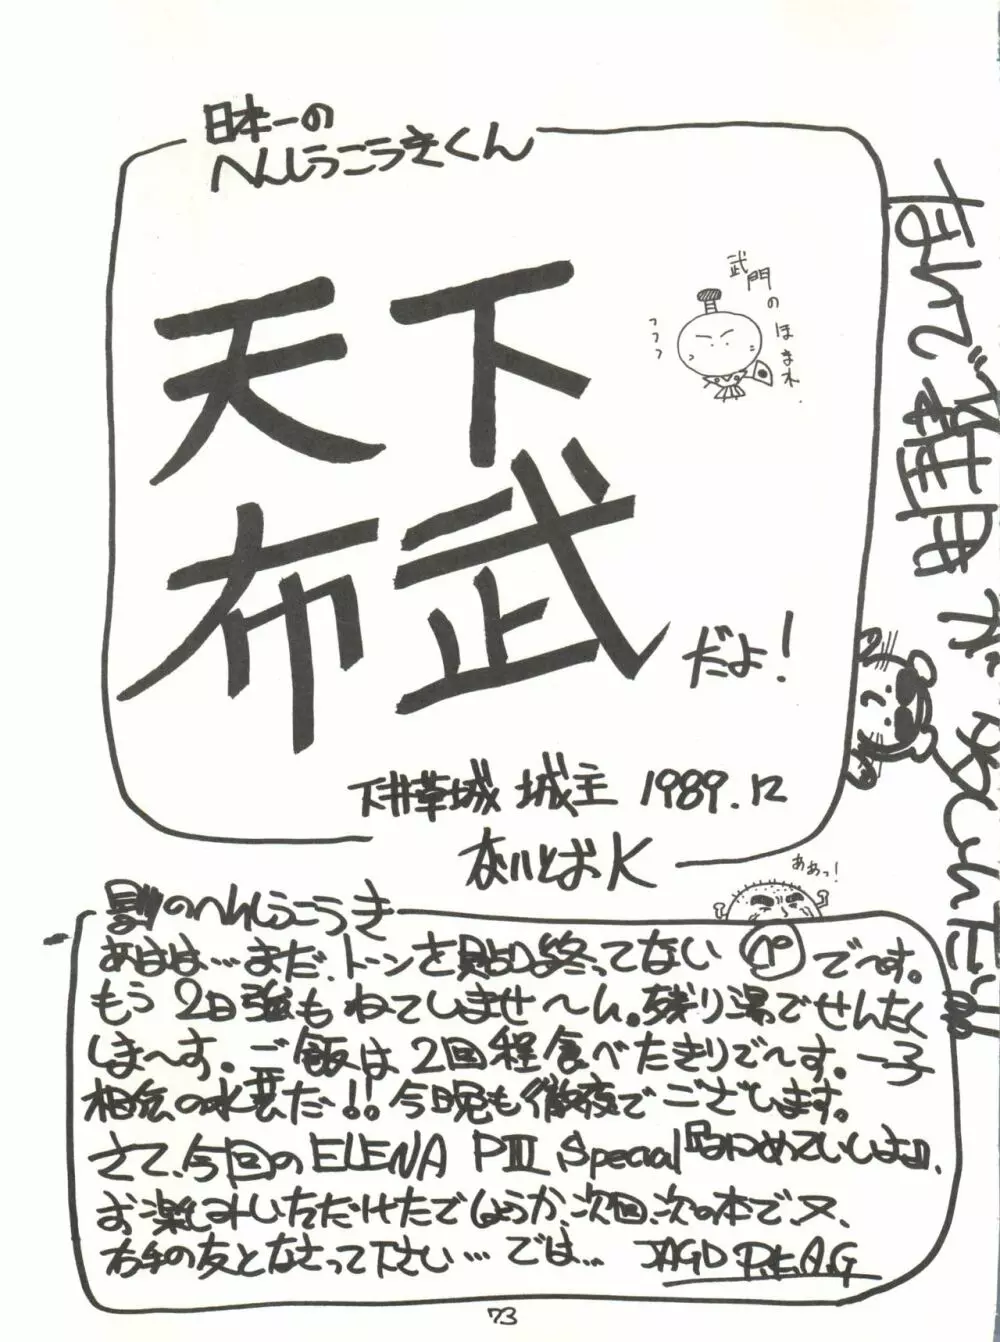 日本一の
へんしうこうきくん
天下
布武
だよ!
武門のほまれ.
フフフ
下井草城 城主 1989.12
ないとおK
なんで理由が
ああっ!
別のへんしうこうき
あはは…まだ、トーンさえ貼り終ってない ペ で〜す。
もう2日強もねてしませ〜ん。残り湯でせんたく
しま〜す。ご飯は2回程食べたきりで〜す。一子
相伝の水芸だ!!今晩も徹夜でございます。
さて、今回のELENA PIII Special
お楽しみいただけたでしょうか、次回、次の本で、又、
右手の友となさって下さい…では… JAGD P.E.A.G
73